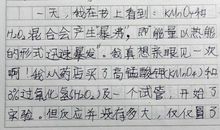 一天,我在书上看到:KMnO₄和
H₂O₂混合会产生暴沸,即“能量以热能
的形式迅速暴发”。我真想亲眼见一次
啊!我从药店买了高锰酸钾(KMnO₄)和
过氧化氢(H₂O₂)及一个试管,开始了
实验。但反应并没有多大,仅仅冒